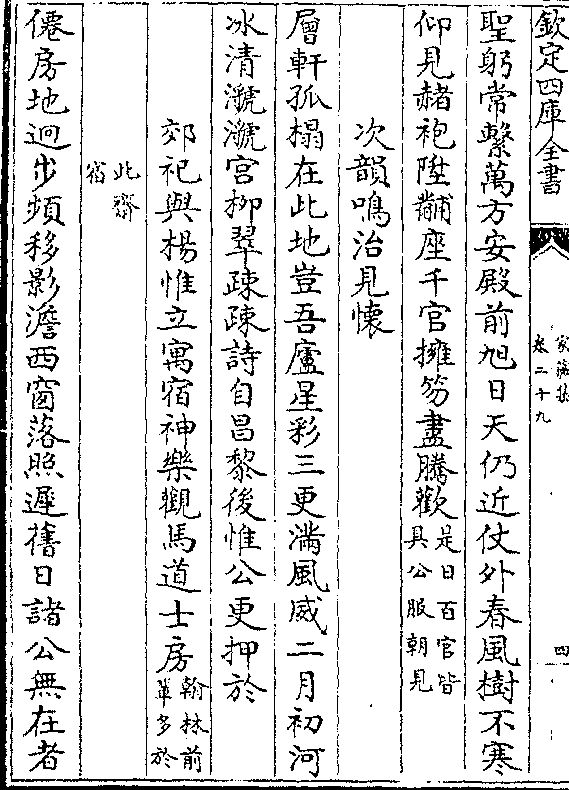 欽定四庫全書
家藏集
卷二十九
四
聖躬常繫萬方安殿前旭日天仍近仗外春風樹不寒
仰見赭袍陞黼座千官擁笏盡騰歡是日百官皆
具公服朝見
次韻鳴治見懷
層軒孤榻在此地豈吾廬星彩三更滿風威二月初河
冰清㶁㶁宮柳翠疎疎詩自昌黎後惟公更押於
郊祀與楊惟立寓宿神樂觀馬道士房翰林前
輩多於
此齋
宿
僊房地迥步頻移影澹西窗落照遲舊日諸公無在者